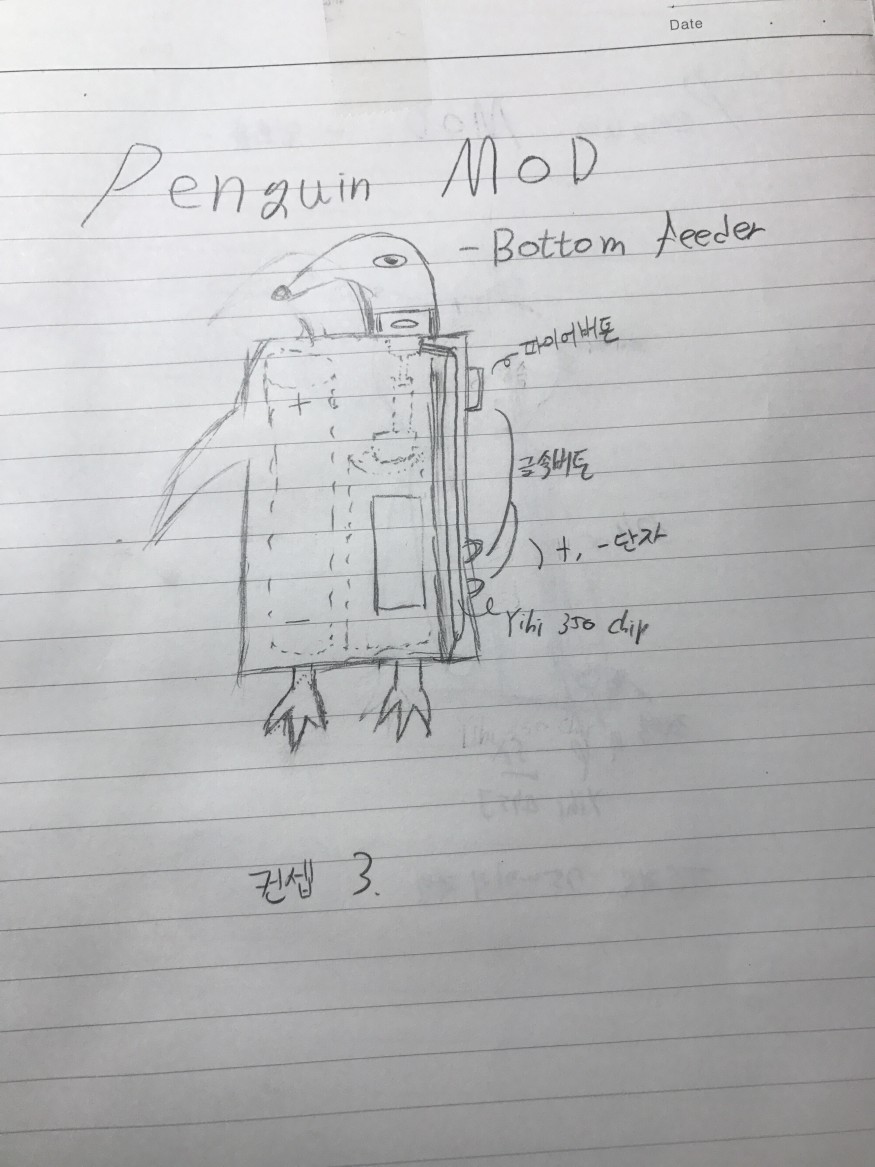 Date
Penguin MOD
- Bottom feeder
파이어버튼
+
금속버튼
+, -단자
Yihi 350 chip
-
컨셉 3.